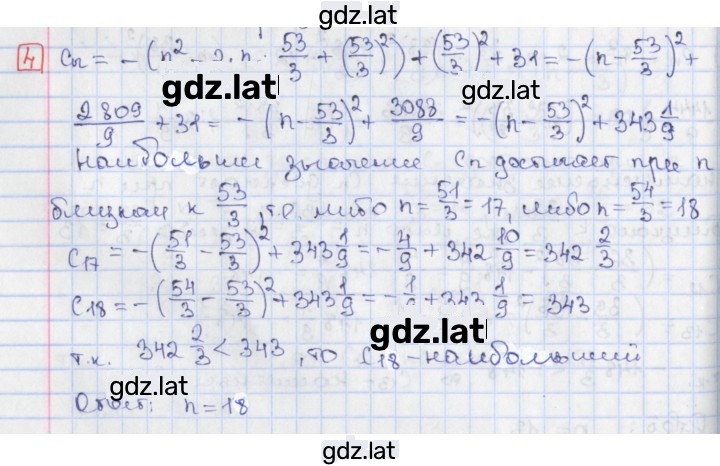 gdz.lat
4 Cn = -(n² - 2·n·53/3 + (53/3)²) + (53/3)² + 31 = -(n - 53/3)² +
gdz.lat gdz.lat
2809/9 + 31 = -(n - 53/3)² + 3088/9 = -(n - 53/3)² + 343 1/9
наибольшее значение Cn достигает при n
близком к 53/3, т.е. либо n = 51/3 = 17, либо n = 54/3 = 18
C17 = -(51/3 - 53/3)² + 343 1/9 = -4/9 + 342 10/9 = 342 2/3
C18 = -(54/3 - 53/3)² + 343 1/9 = -1/9 + 343 1/9 = 343
gdz.lat
т.к. 342 2/3 < 343, то C18 - наибольший
gdz.lat
Ответ: n = 18
gdz.lat